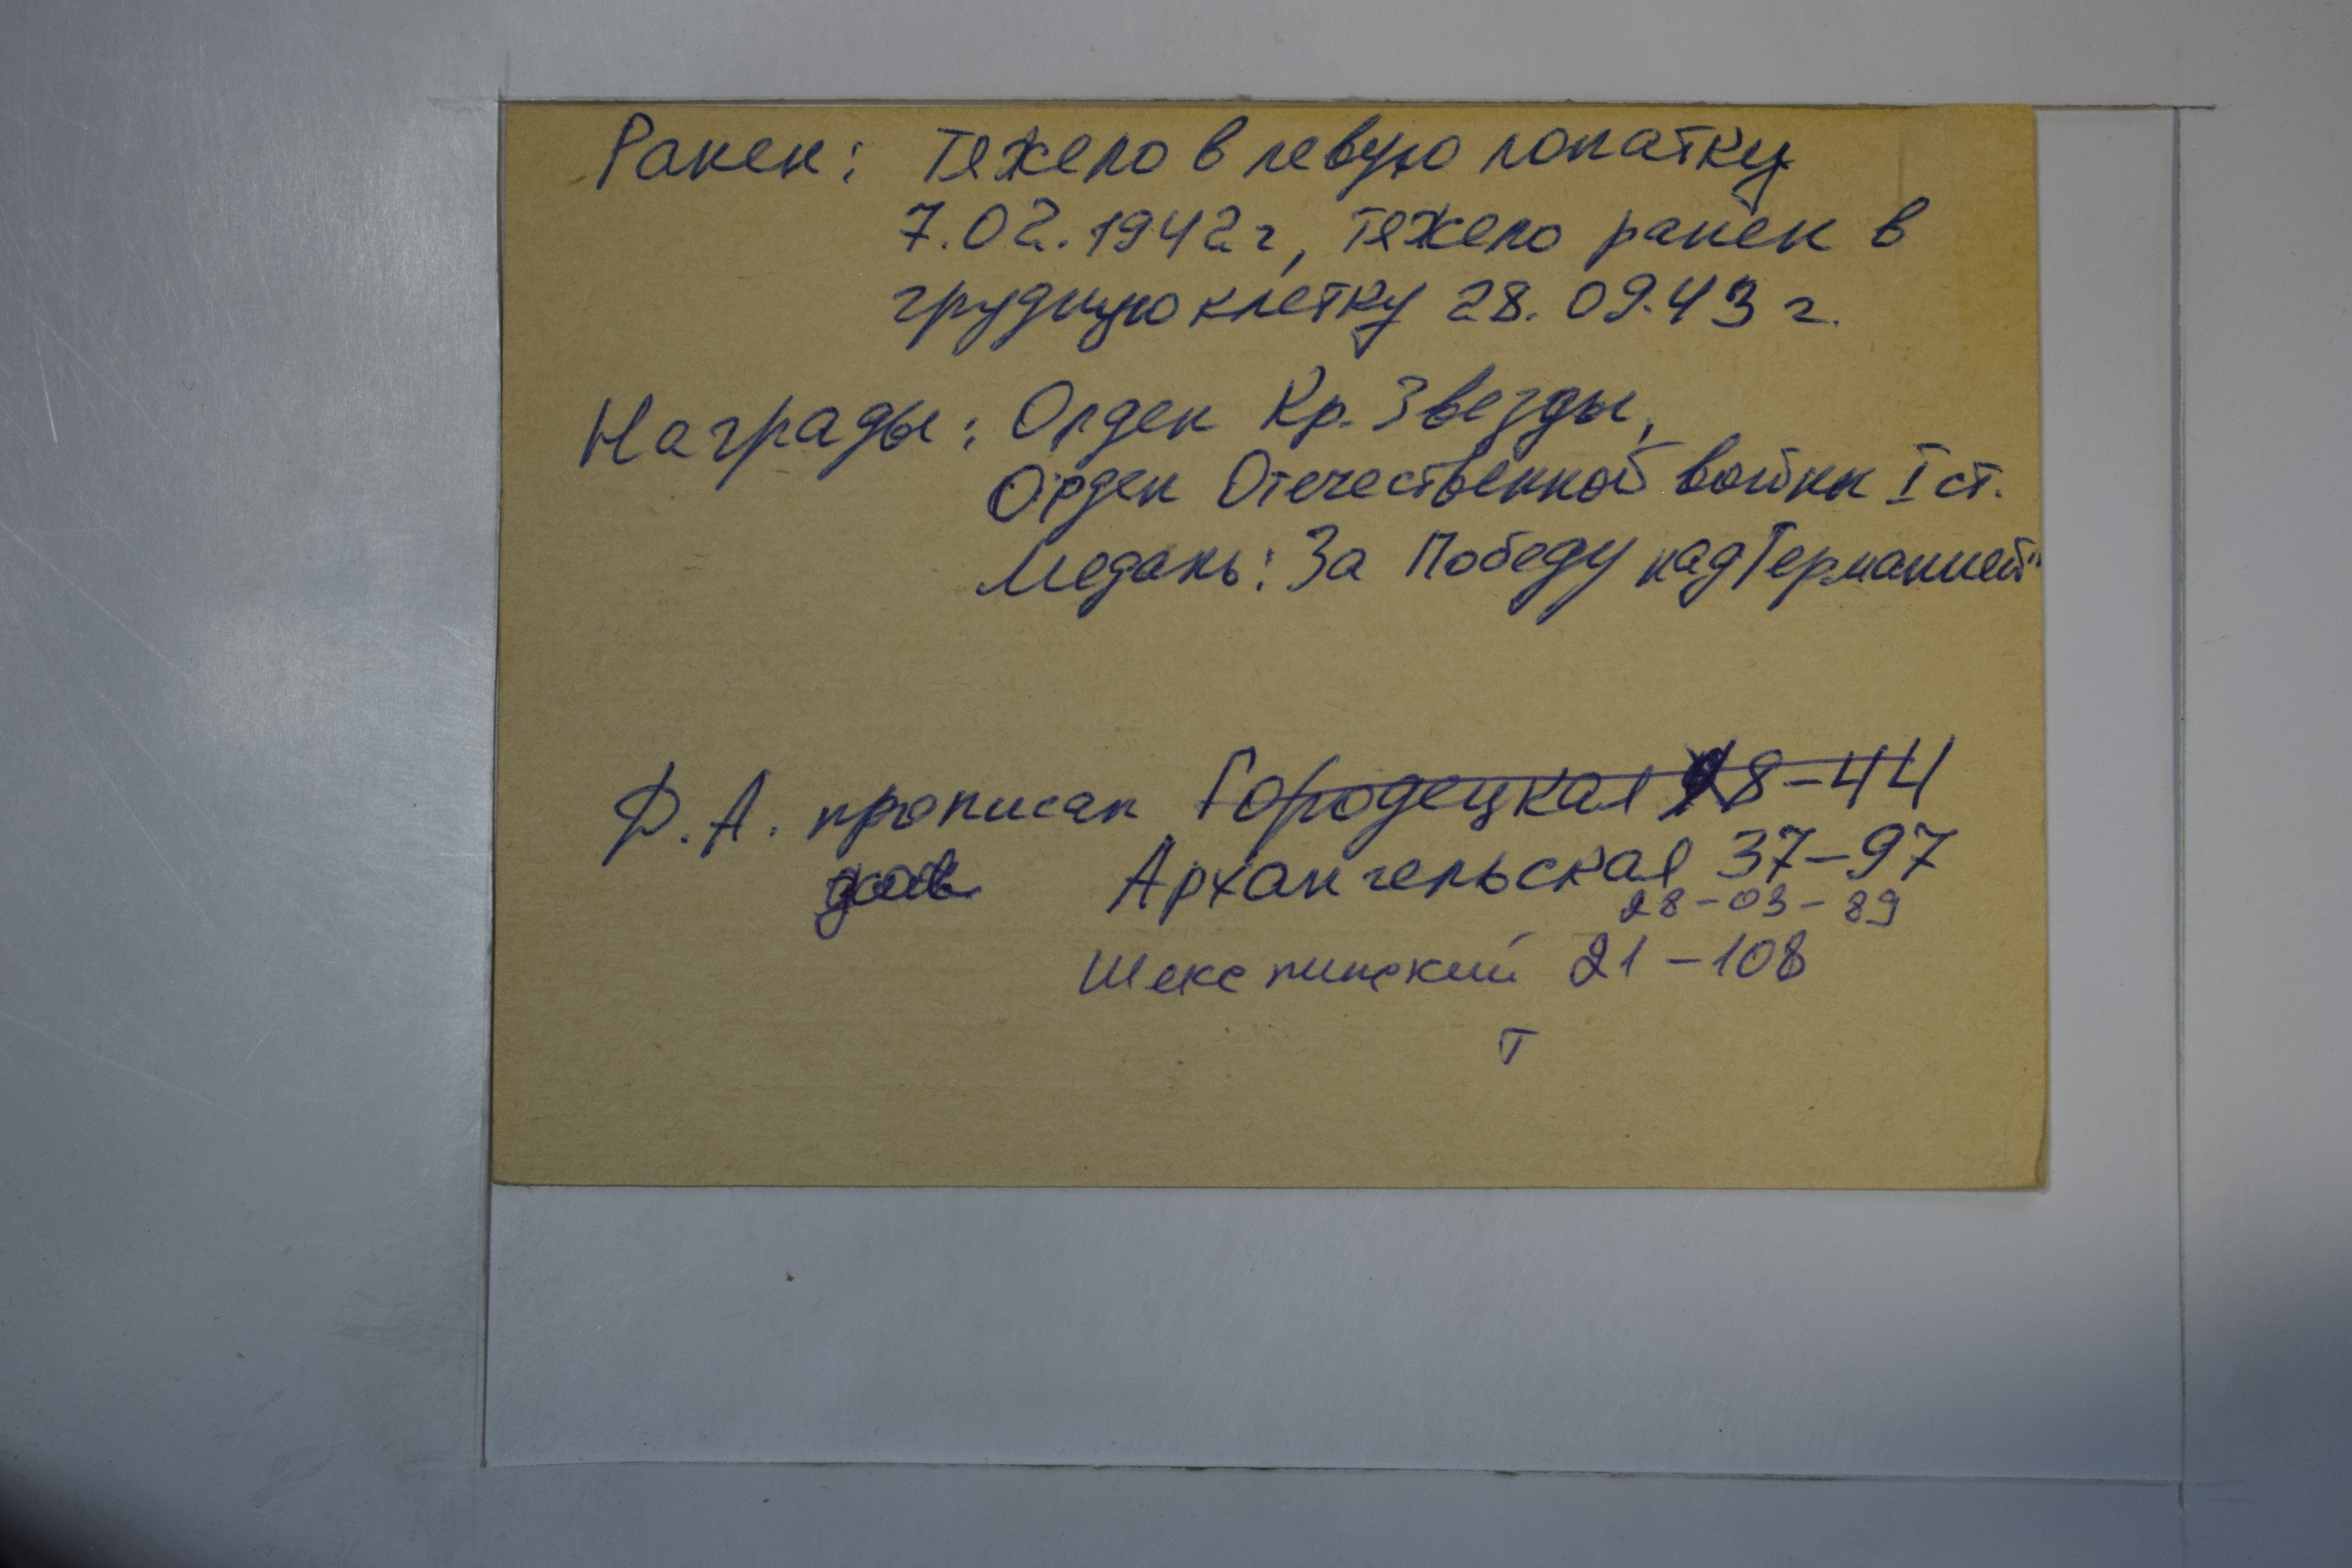 Ранен: Тяжело в левую лопатку
7.02.1942 г, тяжело ранен в
грудную клетку 28.09.43 г.
Награды: Орден Кр. Звезды,
Орден Отечественной войны I ст.
Медаль: За Победу над Германией"
Ф.А. прописан Городецкая 28-44
Архангельская 37-97
28-03-89
Шекснинский 21-108
т